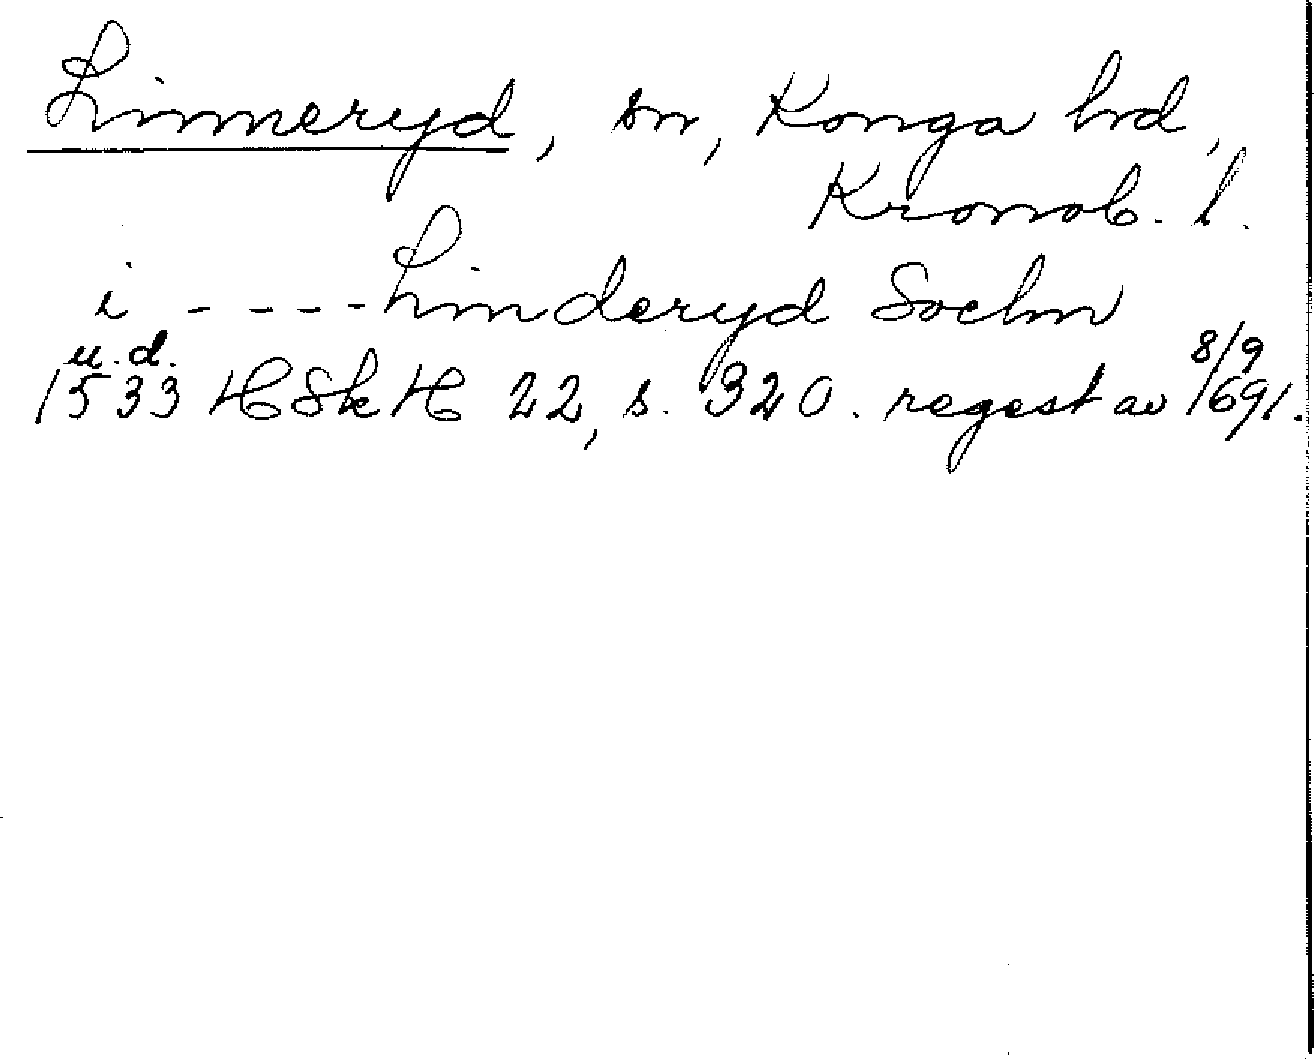 Linneryd, sn, Konga hd,
Kronob. l.
i - - - - Linderyd Sochn
u. d. 8/9
1533 HSkH 22, s. 320. regest av 1691.